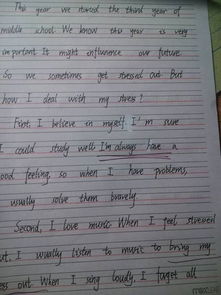 This year we started the third year of
middle school. We know this year is very
important. It might influence our future.
So we sometimes get stressed out. But
how I deal with my stress?
First, I believe in myself. I'm sure
I could study well. I'm always have a
ood feeling, so when I have problems,
usually solve them bravely.
Second, I love music. When I feel stressed
ut, I usually listen to music to bring my
ess out. When I sing loudly, I forget all